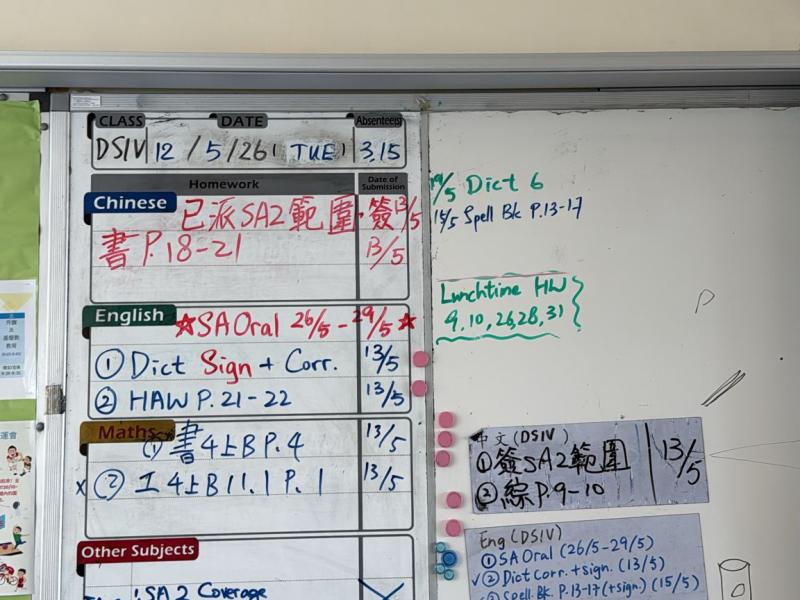 CLASS DATE Absentee(s)
DSIV 12 / 5 / 26 ( TUE ) 3,15
Homework Date of Submission
Chinese 已派SA2範圍·簽 13/5
書 P.18-21 13/5
English ★SA Oral 26/5 - 29/5★
① Dict Sign + Corr. 13/5
② HAW P. 21-22 13/5
Maths ① 書 4上B P. 4 13/5
x ② 工 4上B 11.1 P. 1 13/5
Other Subjects
SA 2 Coverage
Dict 6
15/5 Spell Bk P.13-17
Lunchtime HW
9, 10, 26, 28, 31
P
中文 (DSIV)
① 簽SA2範圍 13/5
② 綜P.9-10
Eng (DSIV)
① SA Oral (26/5-29/5)
✓② Dict Corr. + sign. (13/5)
Spell. Bk. P.13-17 (+sign.) (15/5)